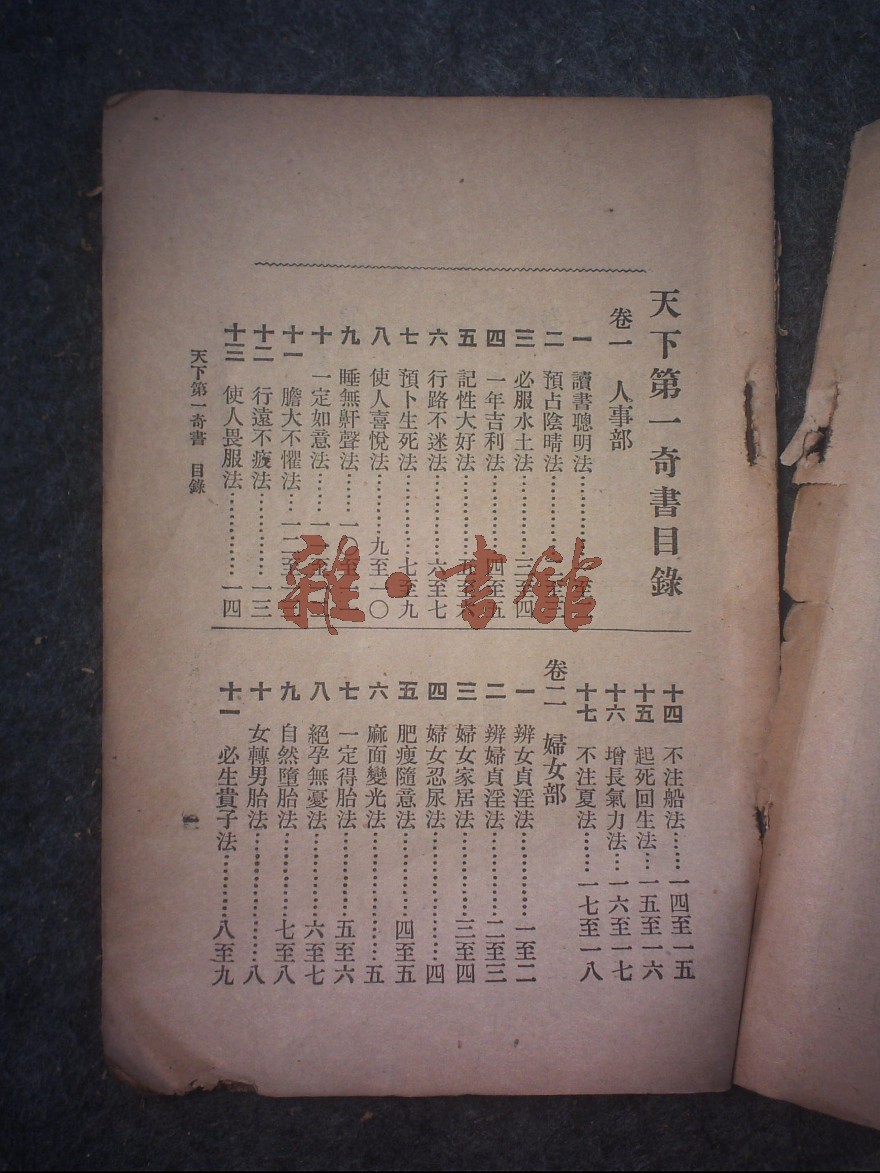 天下第一奇書目錄
卷一　人事部
一　讀書聰明法
二　預占陰晴法
三　必服水土法…………三至四
四　一年吉利法…………四至五
五　記性大好法…………五至六
六　行路不迷法…………六至七
七　預卜生死法…………七至九
八　使人喜悅法…………九至一〇
九　睡無鼾聲法
十　一定如意法
十一　膽大不懼法
十二　行遠不疲法…………一三
十三　使人畏服法…………一四
十四　不注船法……一四至一五
十五　起死回生法…一五至一六
十六　增長氣力法…一六至一七
十七　不注夏法……一七至一八
卷二　婦女部
一　辨女貞淫法…………一至二
二　辨婦貞淫法…………二至三
三　婦女家居法…………三至四
四　婦女忍尿法…………四
五　肥瘦隨意法…………四至五
六　麻面變光法…………五
七　一定得胎法…………五至六
八　絕孕無憂法…………六至七
九　自然墮胎法…………七至八
十　女轉男胎法…………八
十一　必生貴子法…………八至九
天下第一奇書　目錄
雜·書館